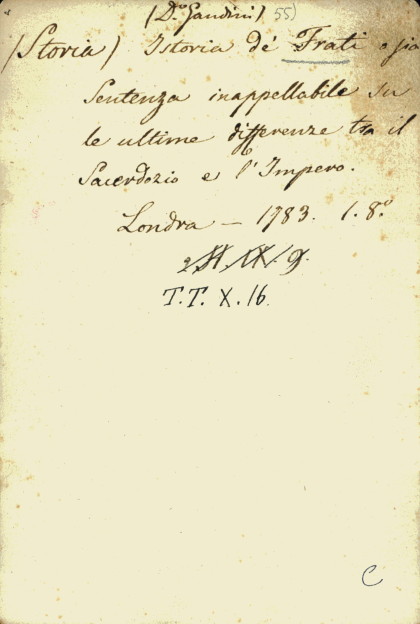 (D.º Gandini) 55)
(Storia) Istoria de' Frati o sia
Sentenza inappellabile su
le ultime differenze tra il
Sacerdozio e l'Impero.
Londra — 1783. 1. 8.º
T.T. X. 16.
C